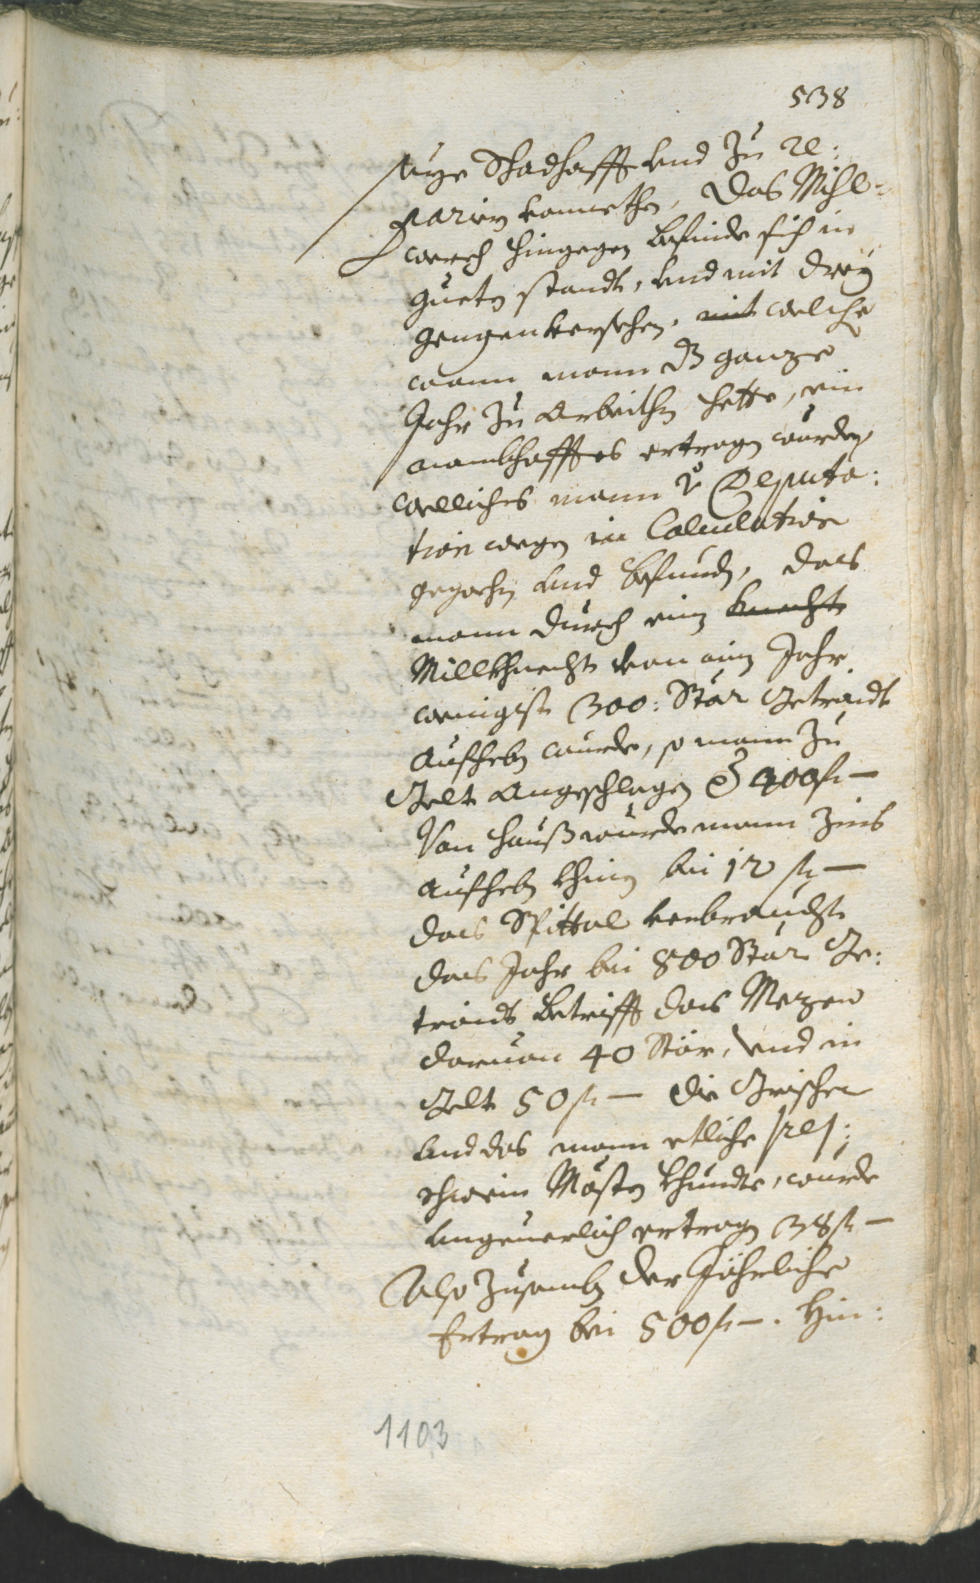 538
stige Schadhafft vnd zu re:
parirn vonnethen, Das Mihl-
werch hingegen befinde sich in
gueten standt, vnd mit drey
gengen versehen, mit welche
wann mann dz ganze
Jahr zu arbeithen hette, ein
nambhafftes ertragen wurden
welliches mann Deputa:
tion wegen in Calculation
gezochen vnd befunden, das
mann durch ein knecht
Millkhnecht von ein Jahr
wenigist 300: Stär Getraidt
aufheben wurde, so mann zu
Gelt angeschlagen 400 fl —
Von Hauß wurde mann Zins
aufheben khinen bei 12 fl —
das Spittal verbraucht
das Jahr bei 800 Stär Ge:
traidt betrifft das Mezen
daruon 40 Stär, vnd in
Gelt 50 fl — die Grischen
vnd das mann etliche
schwein Mösten khundte, wurde
vngeuerlich ertragen 38 fl —
Also zusamben der Jährliche
Ertrag bei 500 fl —. Hin:
1103